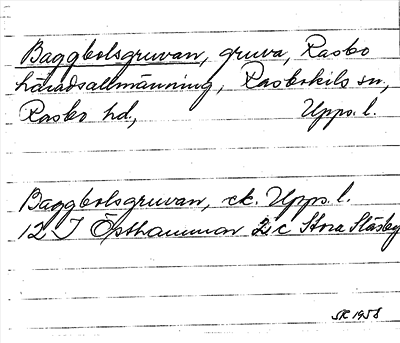 Baggbolsgruvan, gruva, Rasbo
häradsallmänning, Rasbokils sn,
Rasbo hd., Upps. l.
Baggbolsgruvan, ek. Upps. l.
12 I Östhammar 2 c Stora Slåsby
SK 1958